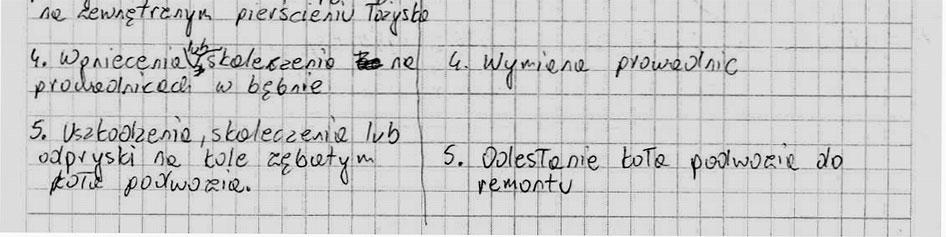 na zewnętrznym pierścieniu łożyska
4. Wgniecenia lub skaleczenia na
prowadnicach w bębnie
4. Wymiana prowadnic
5. Uszkodzenia, skaleczenia lub
odpryski na kole zębatym
koła podwozia.
5. Odesłanie koła podwozia do
remontu